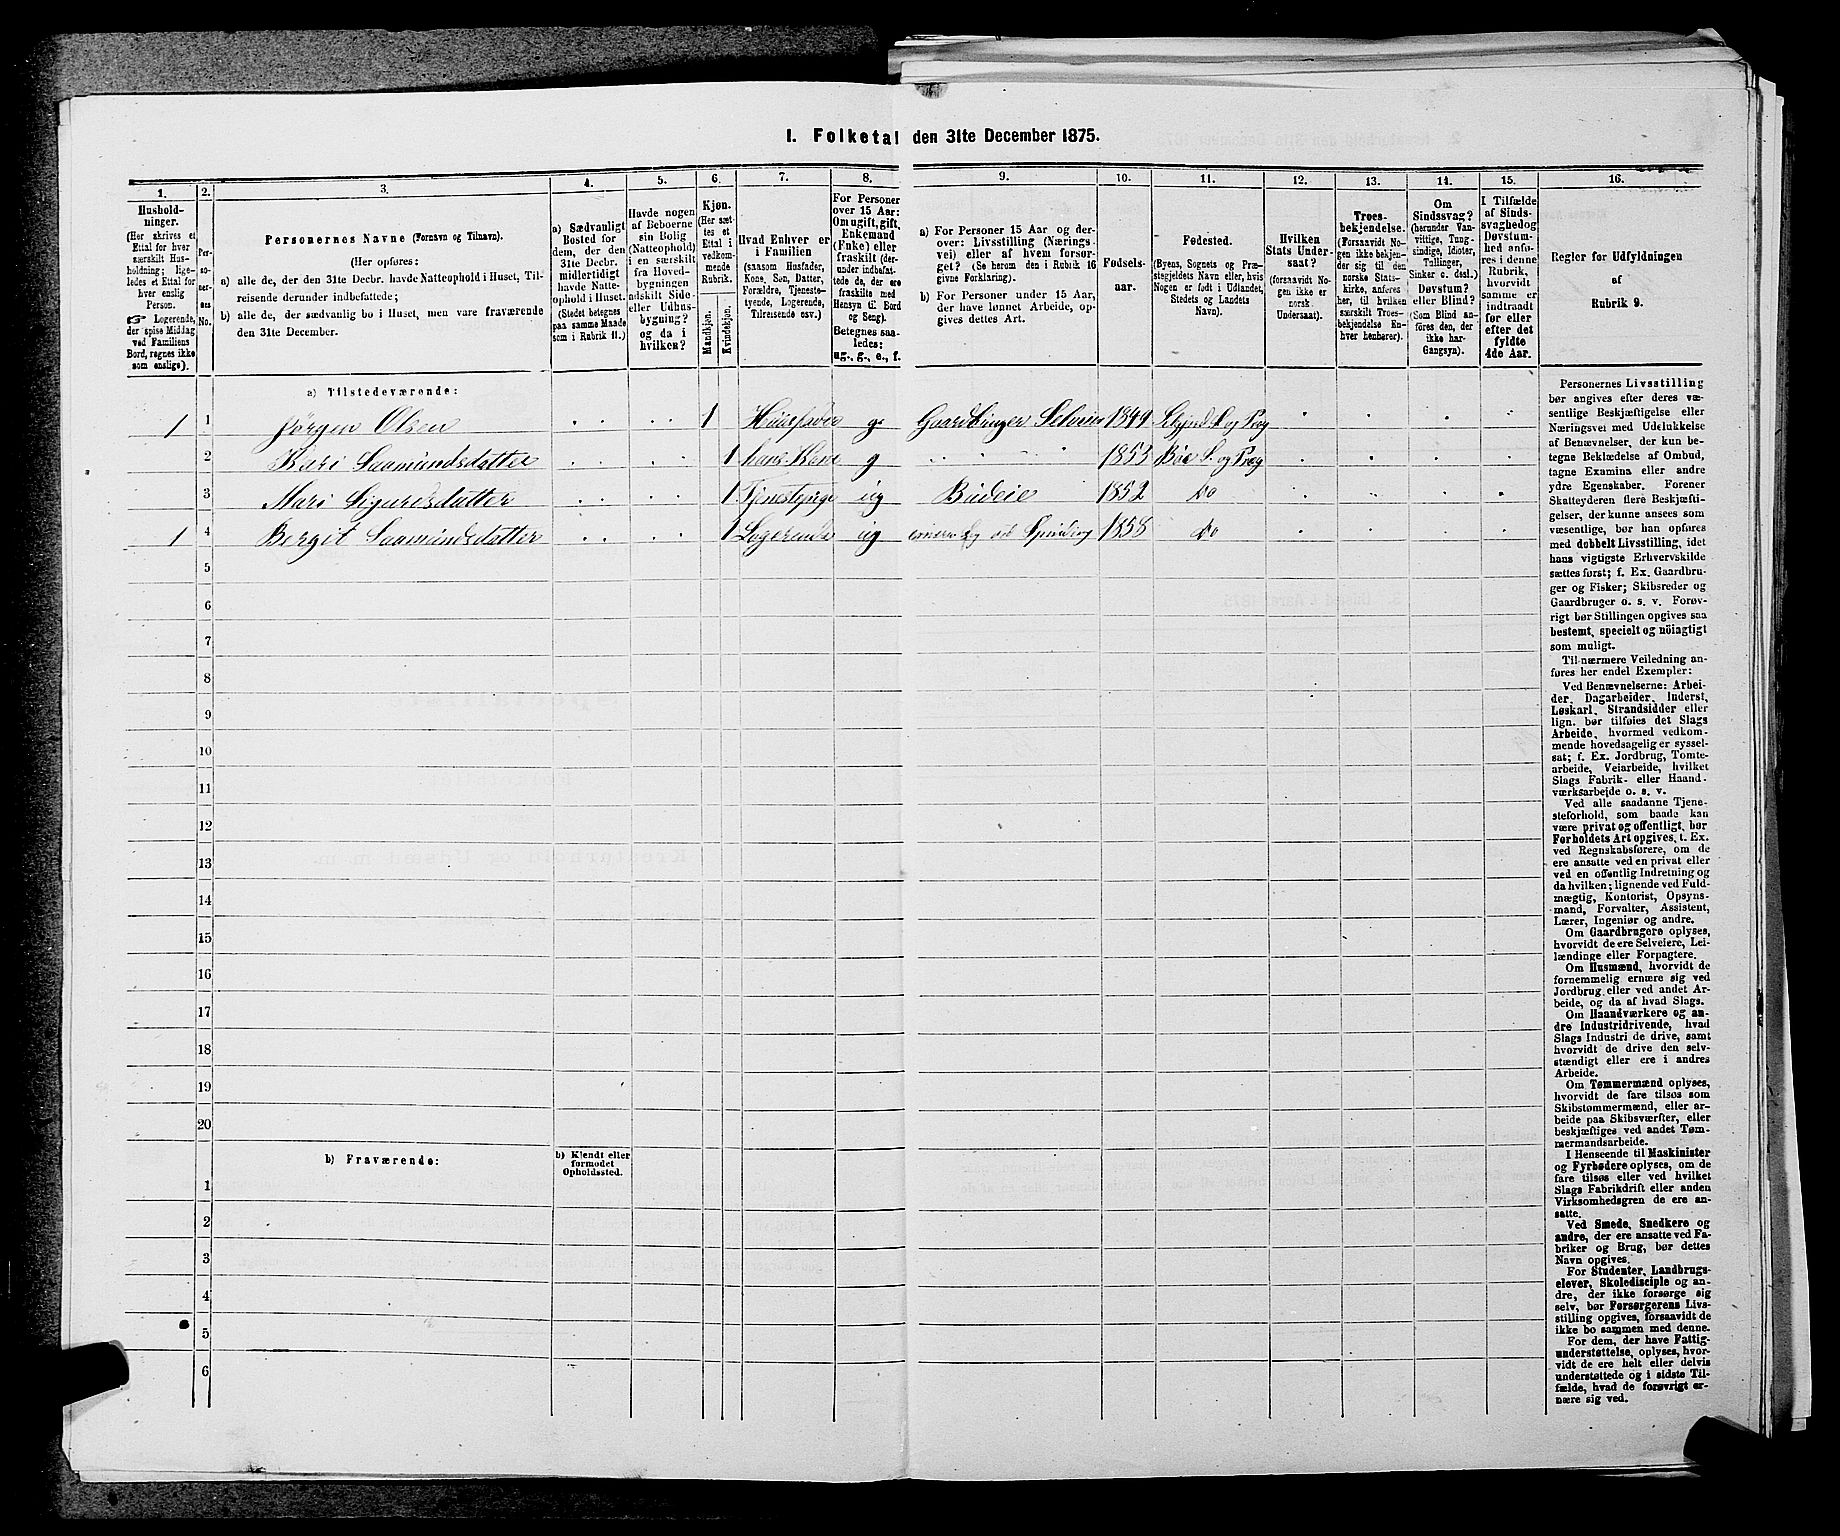 I. Folketal den 31te December 1875.
1. 2. 3. 4. 5. 6. 7. 8. 9. 10. 11. 12. 13. 14. 15. 16.
Hushold-
ninger.
(Her skrives et
Ettal for hver
særskilt Hus-
holdning; lige-
ledes et Ettal for
hver enslig
Person.
☞ Logerende,
der spise Middag
ved Familiens
Bord, regnes ikke
som enslige).
Per-
so-
ner-
nes
No.
Personernes Navne (Fornavn og Tilnavn).
(Her opføres:
a) alle de, der den 31te Decbr. havde Natteophold i Huset, Til-
reisende derunder indbefattede;
b) alle de, der sædvanlig bo i Huset, men vare fraværende
den 31te December.
a) Sædvanligt
Bosted for
dem, der den
31te Decbr.
midlertidigt
havde Natte-
ophold i Huset.
(Stedet betegnes
paa samme Maade
som i Rubrik 11.)
Havde nogen
af Beboerne
sin Bolig
(Natteophold)
i en særskilt
fra Hoved-
bygningen
adskilt Side-
eller Udhus-
bygning?
og da i
hvilken?
Kjøn.
(Her sæt-
tes et
Ettal i
vedkom-
mende
Rubrik.
Mandkjøn.
Kvindekjøn.
Hvad Enhver er
i Familien
(saasom Husfader,
Kone, Søn, Datter,
Forældre, Tjeneste-
tyende, Logerende,
Tilreisende osv.)
For Personer
over 15 Aar:
Om ugift, gift,
Enkemand
(Enke) eller
fraskilt (der-
under indbefat-
tede de, der ere
fraskilte med
Hensyn til Bord
og Seng).
Betegnes saa-
ledes:
ug., g., e., f.
a) For Personer 15 Aar og der-
over: Livsstilling (Nærings-
vei) eller af hvem forsør-
get? (Se herom den i Rubrik 16
givne Forklaring).
b) For Personer under 15 Aar,
der have lønnet Arbeide, op-
gives dettes Art.
Fødsels-
aar.
Fødested.
(Byens, Sognets og Præ-
stegjeldets Navn eller, hvis
Nogen er født i Udlandet,
Stedets og Landets
Navn).
Hvilken
Stats Under-
saat?
(forsaavidt No-
gen ikke er
norsk
Undersaat).
Troes-
bekjendelse.
(Forsaavidt No-
gen ikke bekjen-
der sig til den
norske Stats-
kirke, anføres
her, til hvilken
særskilt Troes-
bekjendelse En-
hver henhører).
Om
Sindssvag?
(herunder Van-
vittige, Tung-
sindige, Idioter,
Tullinger,
Sinker o. desl.)
Døvstum?
eller Blind?
(Som Blind an-
føres den, der
ikke har
Gangsyn).
I Tilfælde
af Sinds-
svaghed og
Døvstum-
hed anfø-
res i denne
Rubrik,
hvorvidt
samme er
indtraadt
før eller
efter det
fyldte
4de Aar.
Regler for Udfyldningen
af
Rubrik 9.
a) Tilstedeværende:
1 1 Jørgen Olsen 1 Huusfader g Gaardbruger Selveier 1849 S. og Præg
2 Kari Saamundsdatter 1 hans Kone g 1853 Bøe S. og Præg
3 Mari Sigurdsdatter 1 Tjenestpige ug Budeie 1852 Do
1 4 Bergit Saamundsdatter 1 Logerende ug ved Spinding 1858 Do
5
6
7
8
9
10
11
12
13
14
15
16
17
18
19
20
b) Fraværende:
b) Kjendt eller
formodet
Opholdssted.
1
2
3
4
5
6
Personernes Livsstilling
bør angives efter deres væ-
sentlige Beskjæftigelse eller
Næringsvei med Udelukkelse
af Benævnelser, der kun be-
tegne Beklædelse af Ombud,
tagne Examina eller andre
ydre Egenskaber. Forener
Skatteyderen flere Beskjæfti-
gelser, der kunne ansees som
væsentlige, bør han opføres
med dobbelt Livsstilling, idet
hans vigtigste Erhvervskilde
sættes først; f. Ex. Gaardbru-
ger og Fisker; Skibsreder og
Gaardbruger o. s. v. Forøv-
rigt bør Stillingen opgives saa
bestemt, specielt og nöiagtigt
som muligt.
Til nærmere Veiledning an-
føres her endel Exempler:
Ved Benævnelserne: Arbei-
der, Dagarbeider, Inderst,
Løskarl, Strandsidder eller
lign. bør tilføies det Slags
Arbeide, hvormed vedkom-
mende hovedsagelig er syssel-
sat; f. Ex. Jordbrug, Tomte-
arbeide, Veiarbeide, hvilket
Slags Fabrik- eller Haand-
værksarbejde o. s. v.
Ved alle saadanne Tjene-
steforhold, som baade kan
være privat og offentligt, bør
Forholdets Art opgives, t. Ex.
ved Regnskabsførere, om de
ere ansatte ved en privat eller
ved en offentlig Indretning og
da hvilken; lignende ved Fuld-
mægtig, Kontorist, Opsyns-
mand, Forvalter, Assistent,
Lærer, Ingeniør og andre.
Om Gaardbrugere oplyses,
hvorvidt de ere Selveiere, Lei-
lændinge eller Forpagtere.
Om Husmænd, hvorvidt de
fornemmelig ernære sig ved
Jordbrug eller ved andet Ar-
beide, og da af hvad Slags.
Om Haandværkere og an-
dre Industridrivende, hvad
Slags Industri de drive, samt
hvorvidt de drive den selv-
stændigt eller ere i andres
Arbeide.
Om Tømmermænd oplyses,
hvorvidt de fare tilsøs som
Skibstømmermænd, eller ar-
beide paa Skibsværfter, eller
beskjæftiges ved andet Tøm-
mermandsarbeide.
I Henseende til Maskinister
og Fyrbødere oplyses, om de
fare tilsøs eller ved hvilket
Slags Fabrikdrift eller anden
Virksomhedsgren de ere an-
satte.
Ved Smede, Snedkere og
andre, der ere ansatte ved Fa-
briker og Brug, bør dettes
Navn opgives.
For Studenter, Landbrugs-
elever, Skoledisciple og an-
dre, der ikke forsørge sig
selv, bør Forsørgerens Livs-
stilling opgives, forsaavidt de
ikke bo sammen med denne.
For dem, der have Fattig-
understøttelse, oplyses, hvor-
vidt de ere helt eller delvis
understøttede og i sidste Til-
fælde, hvad de forøvrigt er-
nære sig ved.